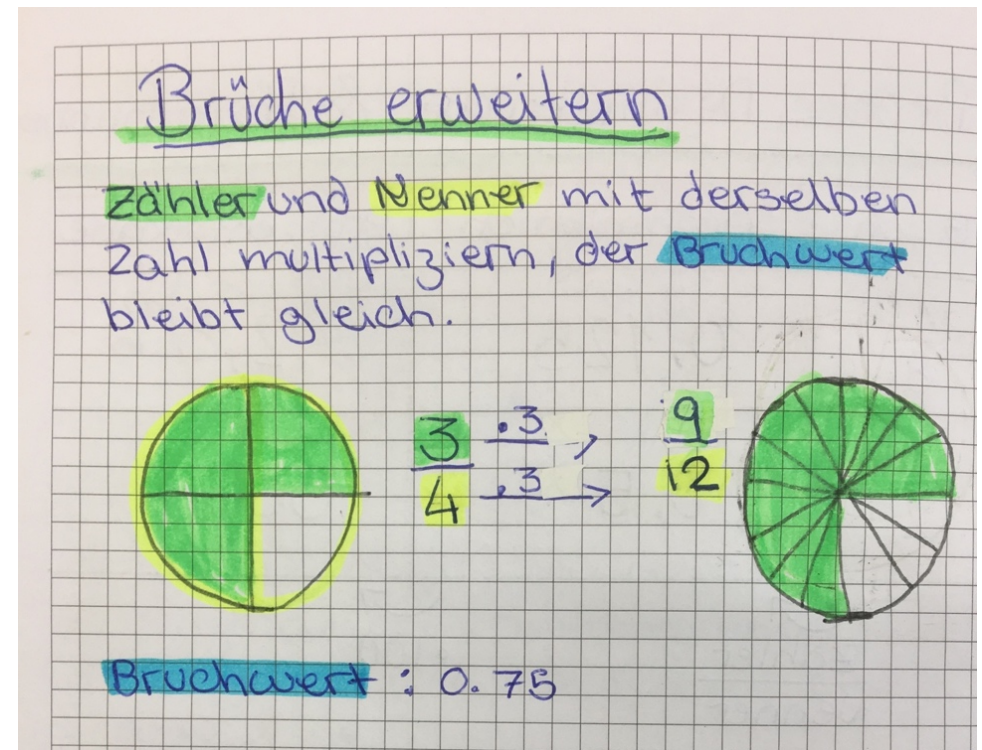 Brüche erweitern
Zähler und Nenner mit derselben
Zahl multipliziern, der Bruchwert
bleibt gleich.
3 .3 9
4 .3 12
Bruchwert : 0.75